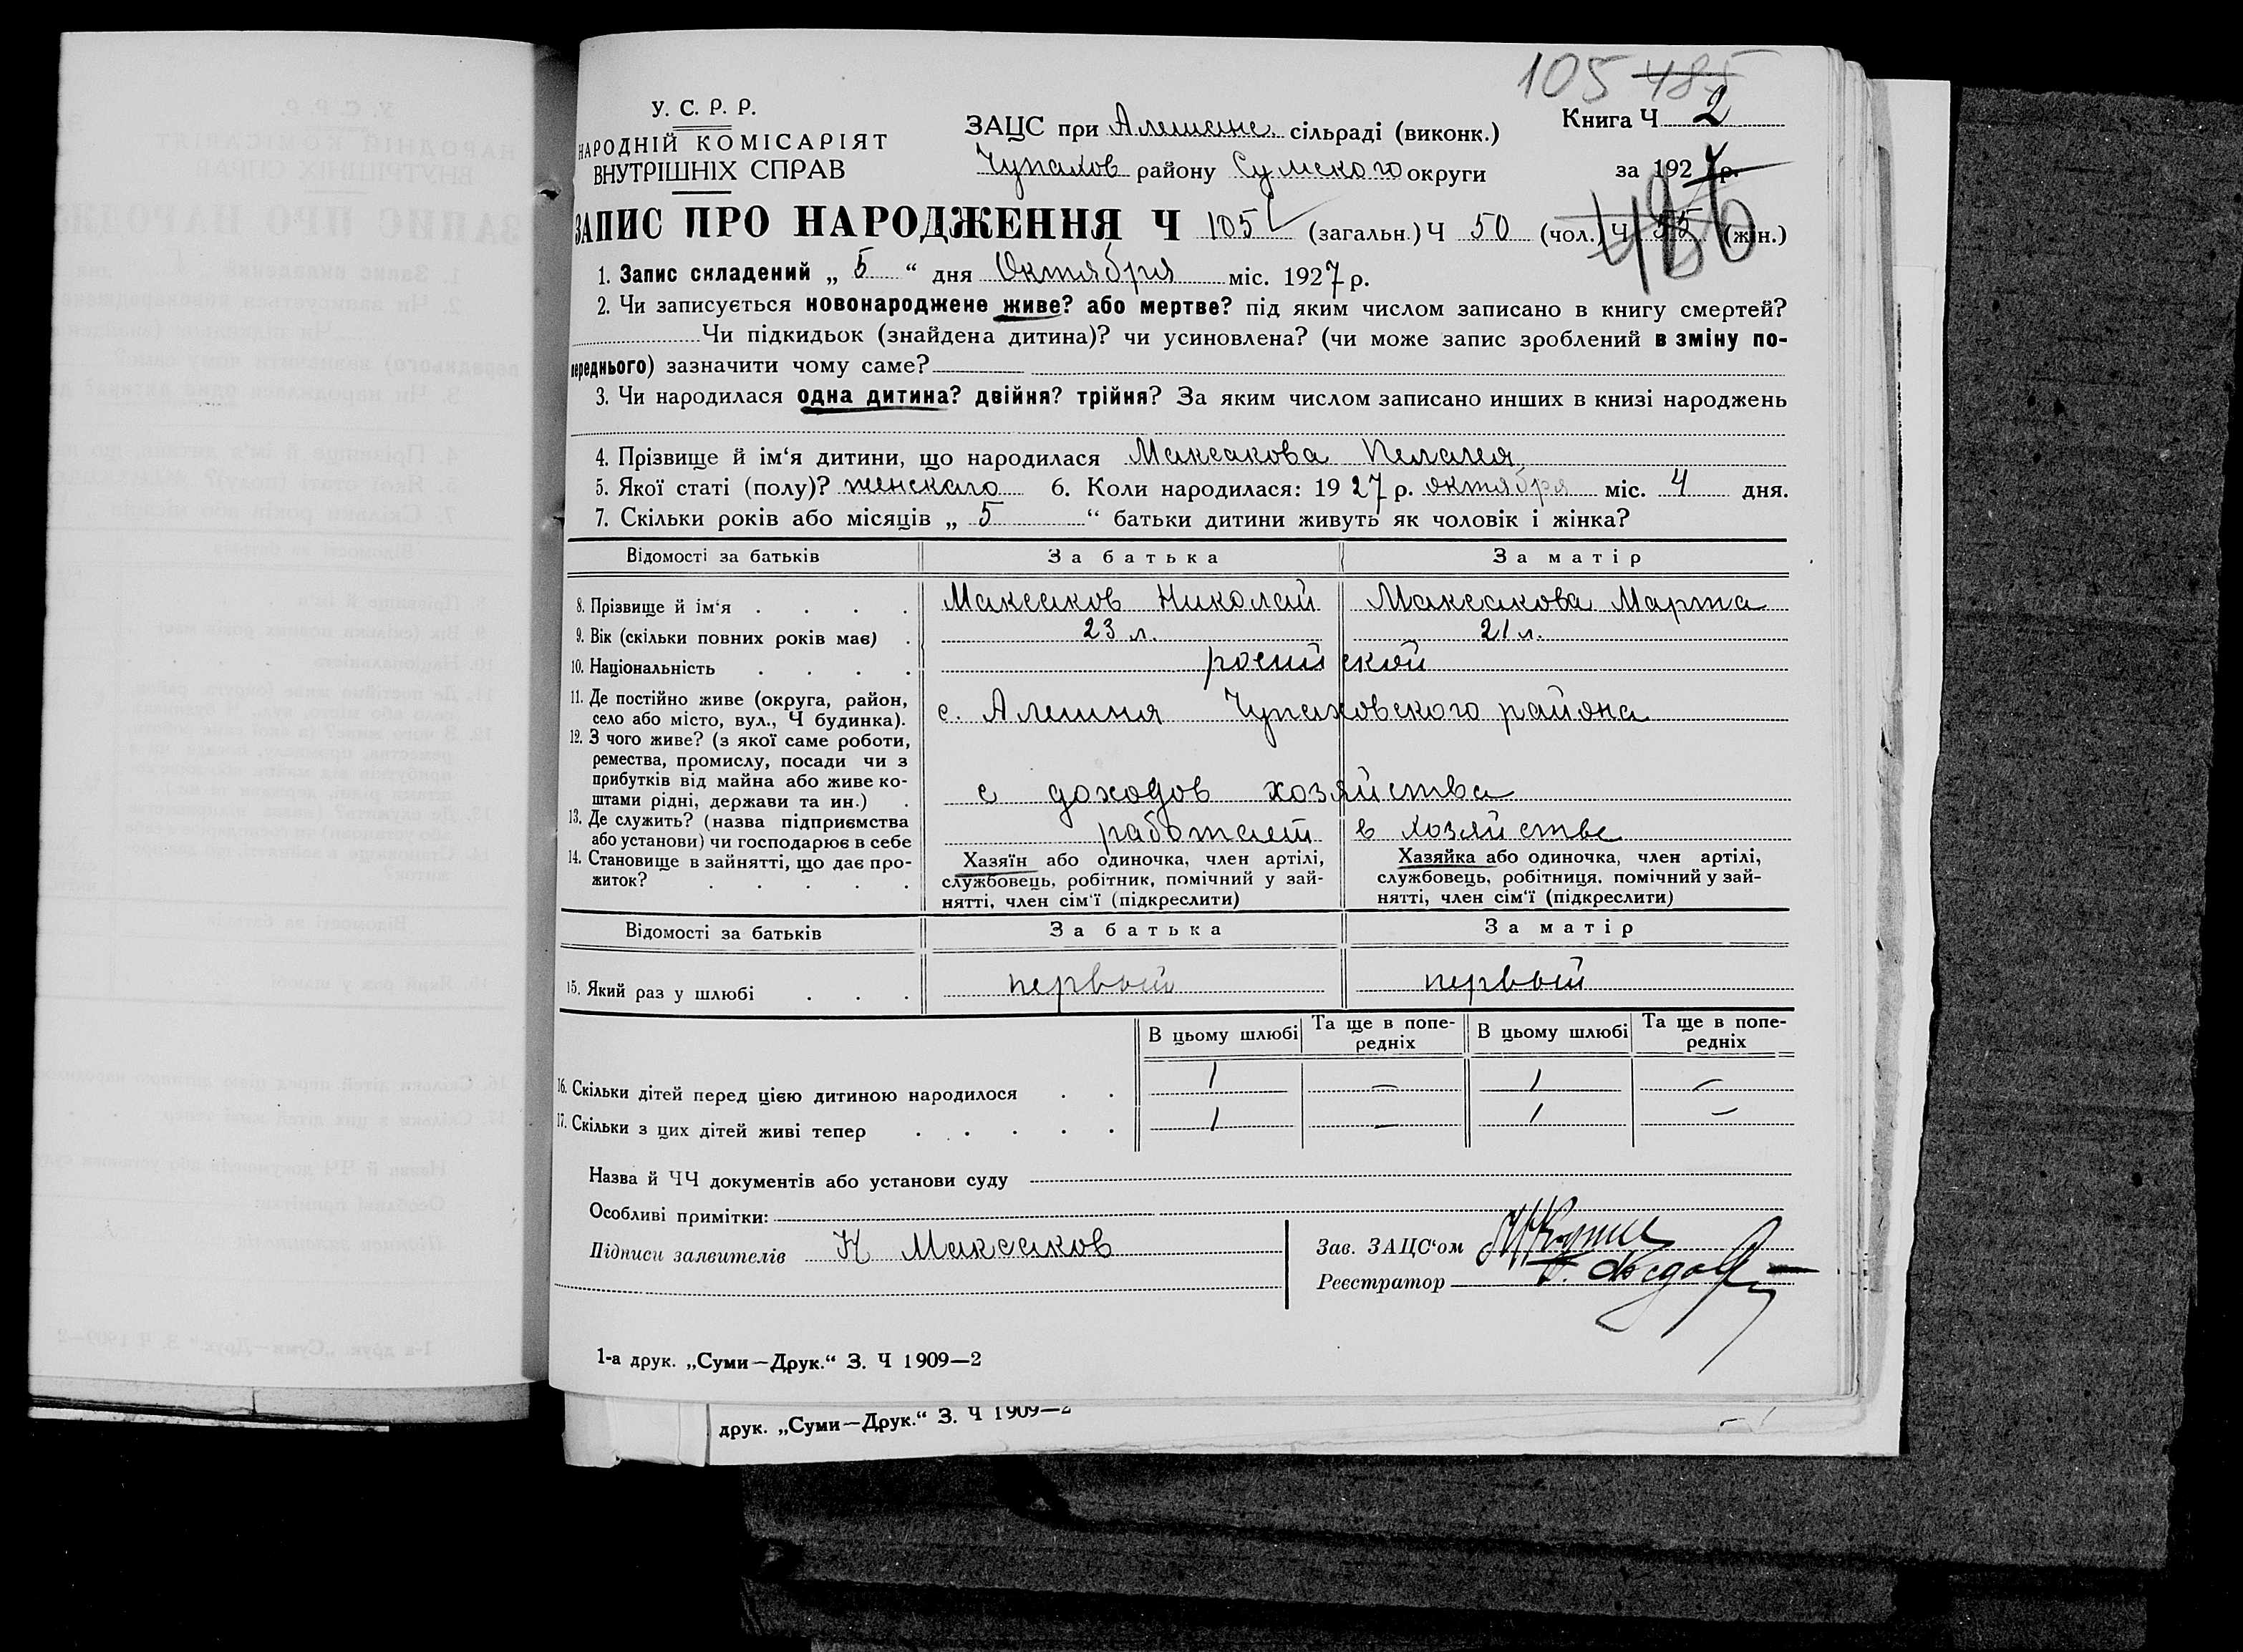 105 485
У. С. Р. Р.
НАРОДНІЙ КОМІСАРІЯТ
ВНУТРІШНІХ СПРАВ
ЗАЦС при Алешине. сільраді (виконк.)
Чупахов району Сумского округи
Книга Ч 2
за 1927 р.
486
ЗАПИС ПРО НАРОДЖЕННЯ Ч 105 (загальн.) Ч 50 (чол.) Ч 55 (жін.)
1. Запис складений „ 5 “ дня Октября міс. 1927 р.
2. Чи записується новонароджене живе? або мертве? під яким числом записано в книгу смертей?
Чи підкидьок (знайдена дитина)? чи усиновлена? (чи може запис зроблений в зміну по-
переднього) зазначити чому саме?
3. Чи народилася одна дитина? двійня? трійня? За яким числом записано инших в книзі народжень
4. Прізвище й ім‘я дитини, що народилася Максакова Пелагея
5. Якої статі (полу)? женскаго 6. Коли народилася: 19 27 р. октября міс. 4 дня.
7. Скільки років або місяців „ 5 “ батьки дитини живуть як чоловік і жінка?
Відомості за батьків За батька За матір
8. Прізвище й ім‘я . . . . Максаков Николай Максакова Марта
9. Вік (скільки повних років має) . 23 л. 21 л.
10. Національність . . . . росийской
11. Де постійно живе (округа, район,
село або місто, вул., Ч будинка). с. Алешня Чупаховского района
12. З чого живе? (з якої саме роботи,
ремества, промислу, посади чи з
прибутків від майна або живе ко-
штами рідні, держави та ин.) . с доходов хозяйства
13. Де служить? (назва підприємства
або установи) чи господарює в себе работает в хозяйстве
14. Становище в зайнятті, що дає про-
житок? . . . . .
Хазяїн або одиночка, член артілі,
службовець, робітник, помічний у зай-
нятті, член сім‘ї (підкреслити)
Хазяйка або одиночка, член артілі,
службовець, робітниця, помічний у зай-
нятті, член сім‘ї (підкреслити)
Відомості за батьків За батька За матір
15. Який раз у шлюбі . . . первый первый
В цьому шлюбі Та ще в попе-
редніх В цьому шлюбі Та ще в попе-
редніх
16. Скільки дітей перед цією дитиною народилося . . 1 — 1 —
17. Скільки з цих дітей живі тепер . . . . . 1 — 1 —
Назва й ЧЧ документів або установи суду
Особливі примітки:
Підписи заявителів Н Максаков
Зав. ЗАЦС‘ом
Реєстратор
1-а друк. „Суми—Друк.“ З. Ч 1909—2
друк. „Суми—Друк.“ З. Ч 1909—2